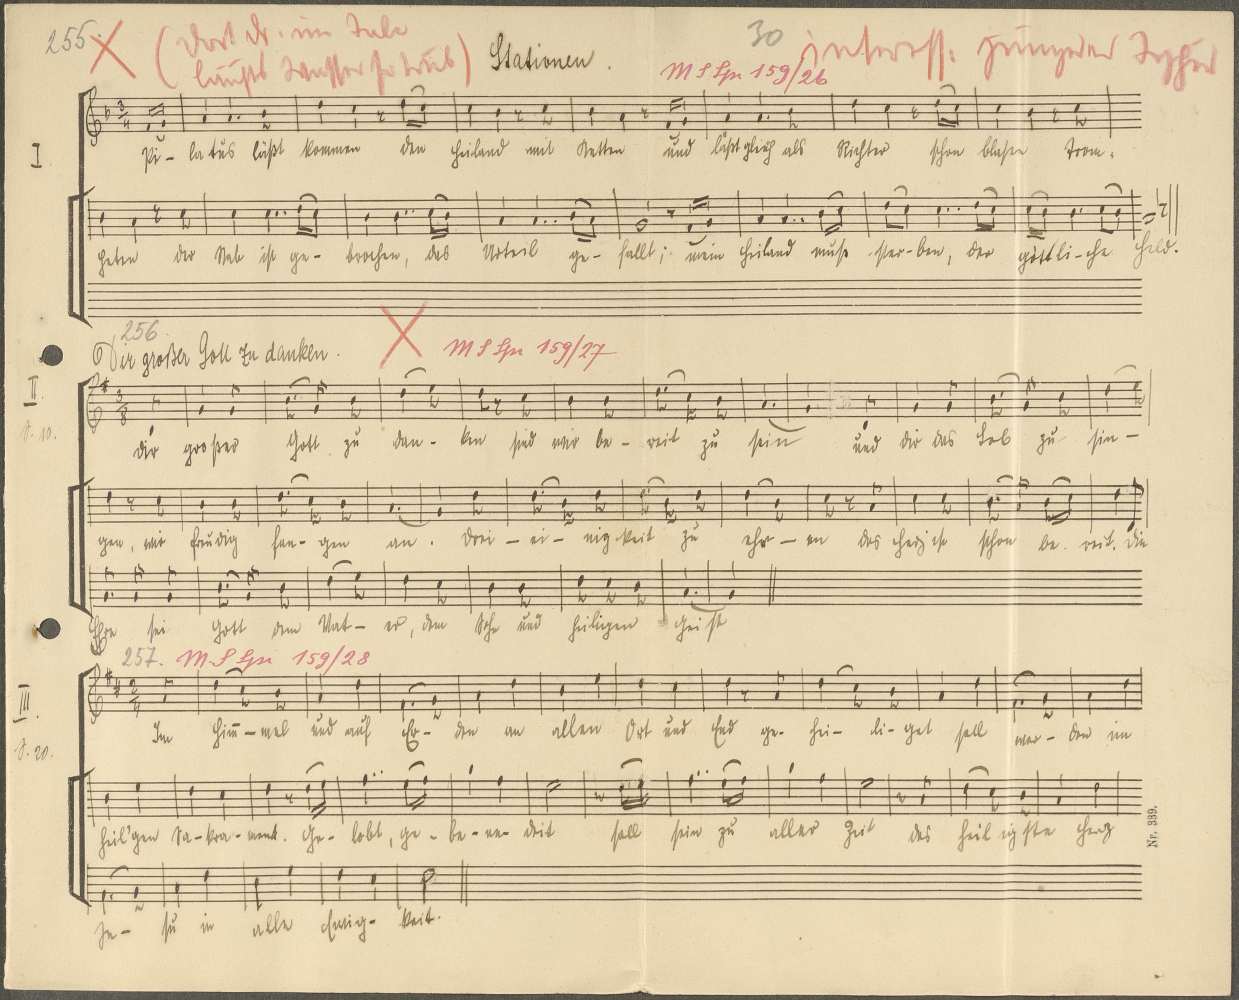 255. 30
(Dort dr. im Tale
läufts Wasser so trüb) Stationen. interess:
M S Spn 159/26
I
Pi- latus läßt kommen den Heiland mit Ketten und läßt gleich als Richter schon blasen Trom-
peten der Stab ist ge- brochen, das Urteil ge- fällt; mein Heiland muß ster- ben, der göttli- che Held.
256.
Dir großer Gott zu danken. M S Spn 159/27
II.
S. 10.
dir großer Gott zu dan- ken sind wir be- reit zu sein und dir das Lob zu sin-
gen, wir freudig fan- gen an. Drei- ei- nigkeit zu ehr- en das Herz ist schon be- reit. die
Ehre sei Gott dem Vat- er, dem Sohn und heiligen Geist
257. M S Spn 159/28
III.
S. 20.
Im Him- mel und auf Er- den an allen Ort und End ge- hei- li- get soll wer- den im
heil'gen Sa- kra- ment. Ge- lobt, ge- be- ne- deit soll sein zu aller Zeit das heiligste Herz
Je- su in alle Ewig- keit.
Nr. 339.